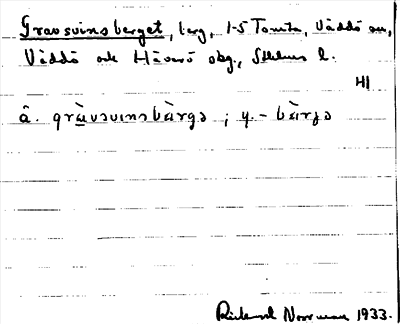 Gravsvinsberget, berg, 1-5 Tomta, Väddö sn,
Väddö och Häverö skg., Sthlms l.
HI
å. gràvsvinsbàrgə ; y. - bàrjə
Rickard Norrman 1933.